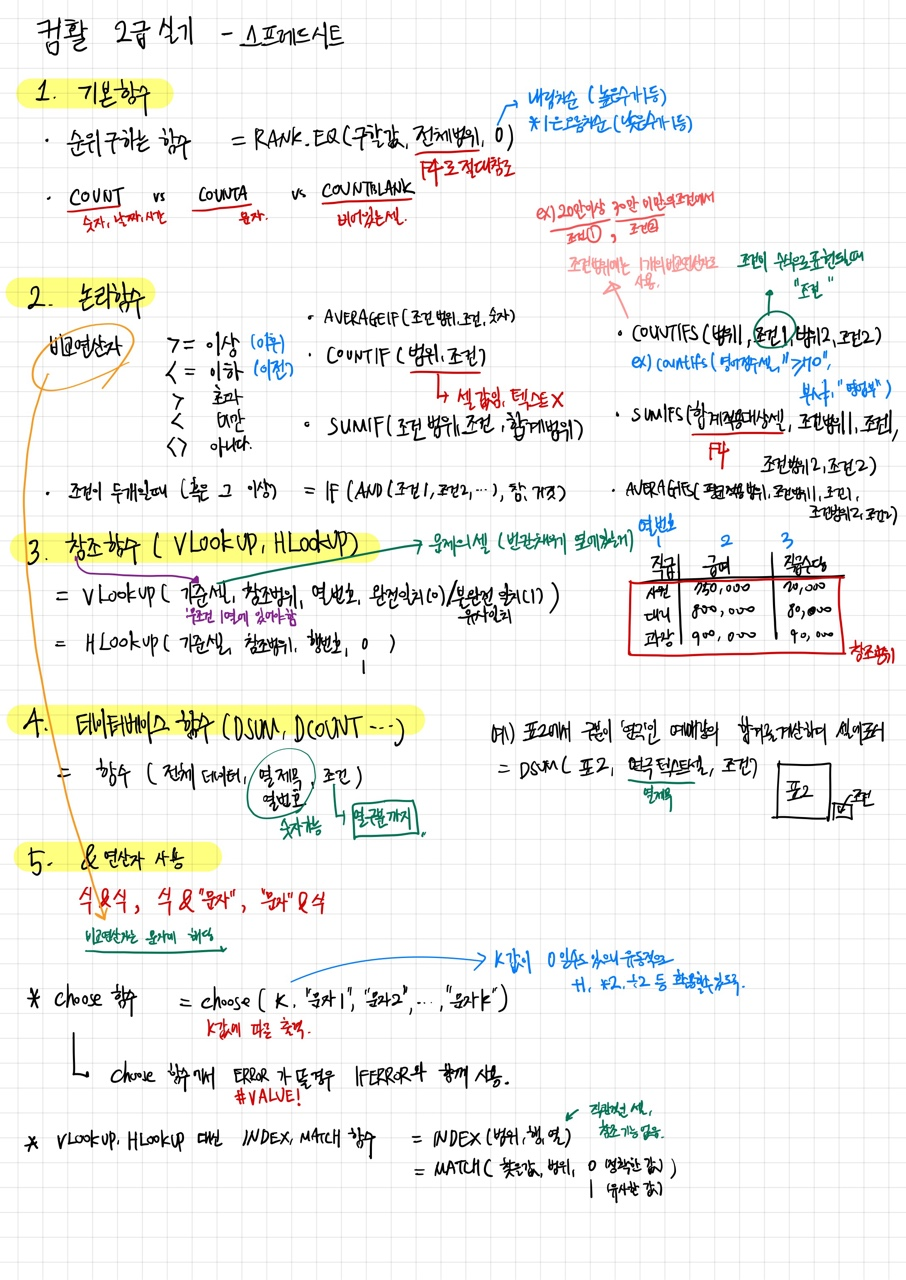 컴활 2급 실기 - 스프레드시트
1. 기본함수
· 순위 구하는 함수 = RANK.EQ(구할값, 전체범위, 0)
내림차순 (높은수가 1등)
*1은 오름차순 (낮은수가 1등)
F4로 절대참조
· COUNT vs COUNTA vs COUNTBLANK
숫자, 날짜, 시간 문자. 비어있는 셀.
ex) 20만이상 30만 미만의 조건에서
조건①, 조건②
조건범위에는 1개의 비교연산자로
사용.
조건이 수식으로 표현될때
"조건"
2. 논리함수
비교연산자
>= 이상 (이후)
<= 이하 (이전)
> 초과
< 미만
<> 아니다.
· AVERAGEIF(조건범위, 조건, 숫자)
· COUNTIF (범위, 조건)
셀값임, 텍스트X
· SUMIF(조건범위, 조건, 합계범위)
· COUNTIFS(범위1, 조건1, 범위2, 조건2)
ex) countifs(영어점수셀, "≥70",
부서, "영업부")
· SUMIFS(합계적용대상셀, 조건범위1, 조건1,
F4
조건범위2, 조건2)
· 조건이 두개일때 (혹은 그 이상) = IF(AND(조건1, 조건2, …), 참, 거짓)
· AVERAGEIFS(평균적용범위, 조건범위1, 조건1,
조건범위2, 조건2)
3. 참조함수 (VLOOKUP, HLOOKUP)
문제의 셀
= VLOOKUP( 기준셀, 참조범위, 열번호, 완전일치(0)/불완전 일치(1) )
유사일치
무조건 1열에 있어야함
= HLOOKUP( 기준셀, 참조범위, 행번호, 0 )
1
열번호
1 2 3
직급 급여 직급수당
사원 750,000 70,000
대리 800,000 80,000
과장 900,000 90,000
참조범위
4. 데이터베이스 함수 (DSUM, DCOUNT …)
= 함수 (전체 데이터, 열제목, 조건)
열번호
숫자가능
열구분까지.
예) 표2에서 구분이 '연극'인 예매량의 합계를 계산하여
= DSUM( 표2, 연극텍스트셀, 조건)
열제목
표2
조건
5. & 연산자 사용
식&식, 식&"문자", "문자"&식
비교연산자는 문자에 해당
K값이 0일수도 있으니 유동적으로
+1, *2, ÷2 등 활용할수있도록.
* choose 함수 = choose( K, "문자1", "문자2", …, "문자K")
K값에 따라 출력.
choose 함수에서 ERROR가 뜰경우 IFERROR와 함께 사용.
#VALUE!
* VLOOKUP, HLOOKUP 대신 INDEX, MATCH 함수 = INDEX(범위, 행, 열)
직관적인 셀,
참조 기능 없음.
= MATCH( 찾을값, 범위, 0 (정확한 값) )
1 (유사한 값)